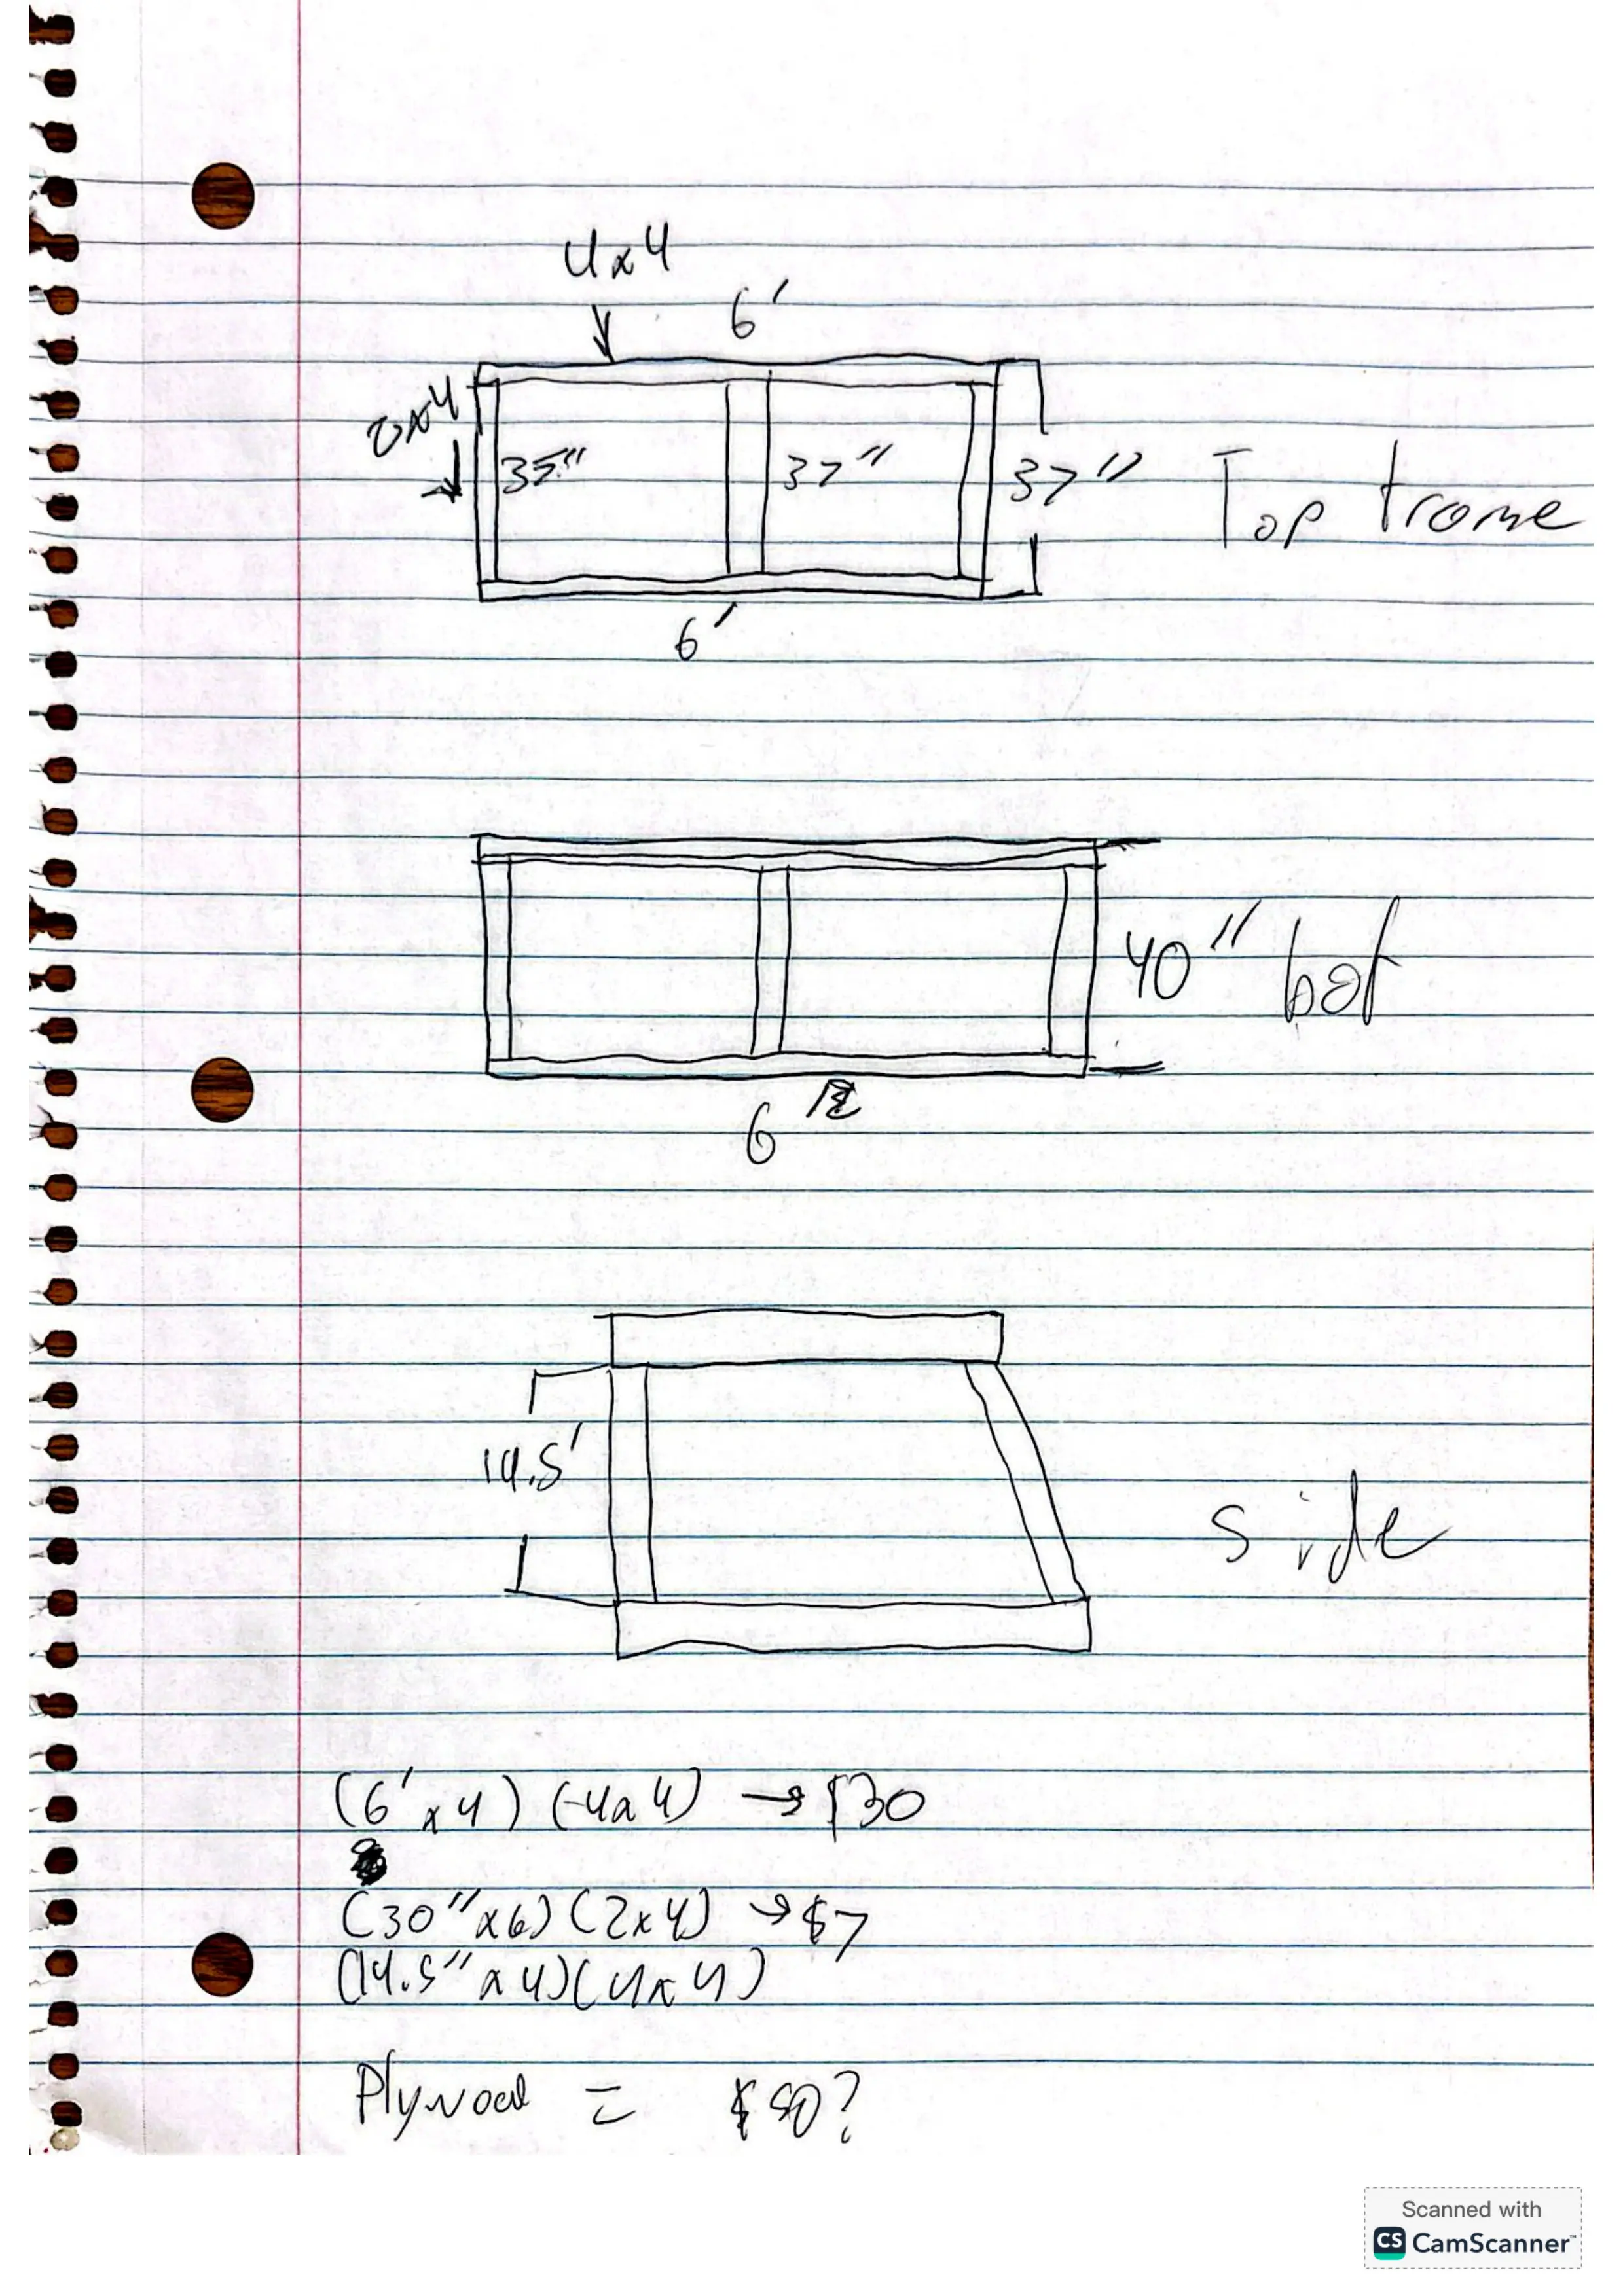 4x4
6'
2x4
35"
37"
37"
Top frame
6'
40"
bot
6
14.5'
side
(6' x 4) (4x4) → $30
(30" x 6) (2x4) → $7
(14.5" x 4) (4x4)
Plywood = $50?
Scanned with
CS CamScanner